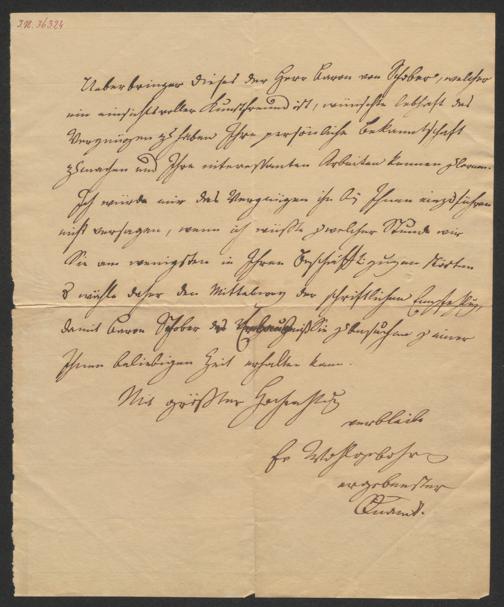 I.N. 36324
Ueberbringer dieses der Herr Baron von Schober, welcher
ein einsichtsvoller Kunstfreund ist, wünschte lebhaft das
Vergnügen zu haben Ihre persönliche Bekanntschaft
zu machen und Ihre interessanten Arbeiten kennen zu lernen.
Ich würde mir das Vergnügen ihn bei Ihnen einzuführen
nicht versagen, wenn ich wüßte zu welcher Stunde wir
Sie am wenigsten in Ihren Geschäften stören
wähle daher den Mittelweg der schriftlichen Empfehlung,
damit Baron Schober die Erlaubniß Sie zu besuchen zu einer
Ihnen beliebigen Zeit erhalten kann.
Mit größter Hochachtung
verbleibe
Ew Wohlgebohrn
ergebenster
Quandt.